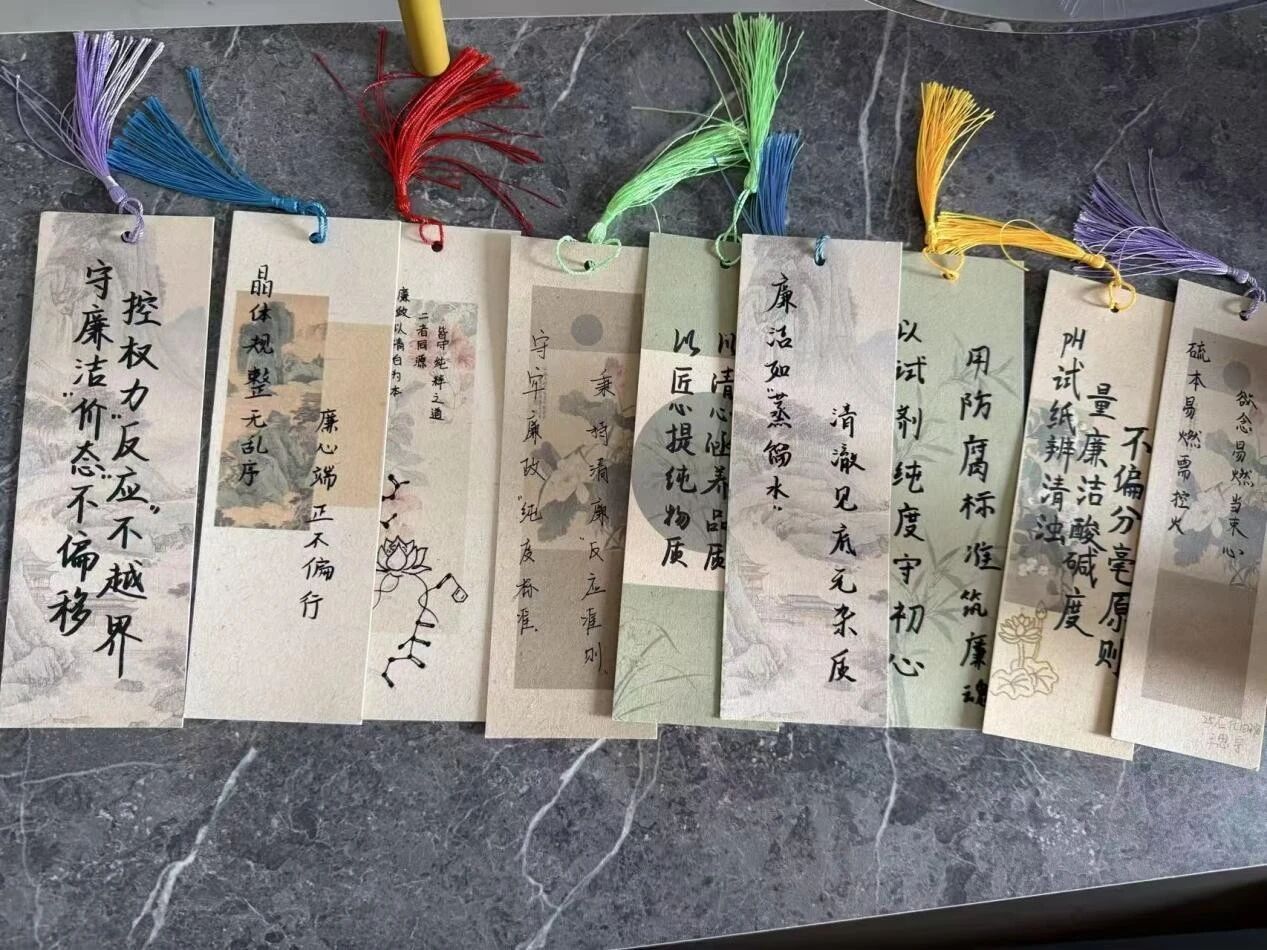 守廉洁“价态”不偏移
控权力“反应”不越界
晶体规整无乱序
廉心端正不偏行
廉政以清白为本
二者同源
皆守纯粹之道
守牢廉政“纯度标准
秉持清廉“反应准则
以匠心提纯物质
以清心涵养品质
廉洁如“蒸馏水”
清澈见底无杂质
以试剂纯度守初心
用防腐标准筑廉魂
PH试纸辨清浊
量廉洁酸碱度
不偏分毫原则
硫本易燃需控火
欲念易燃当束心